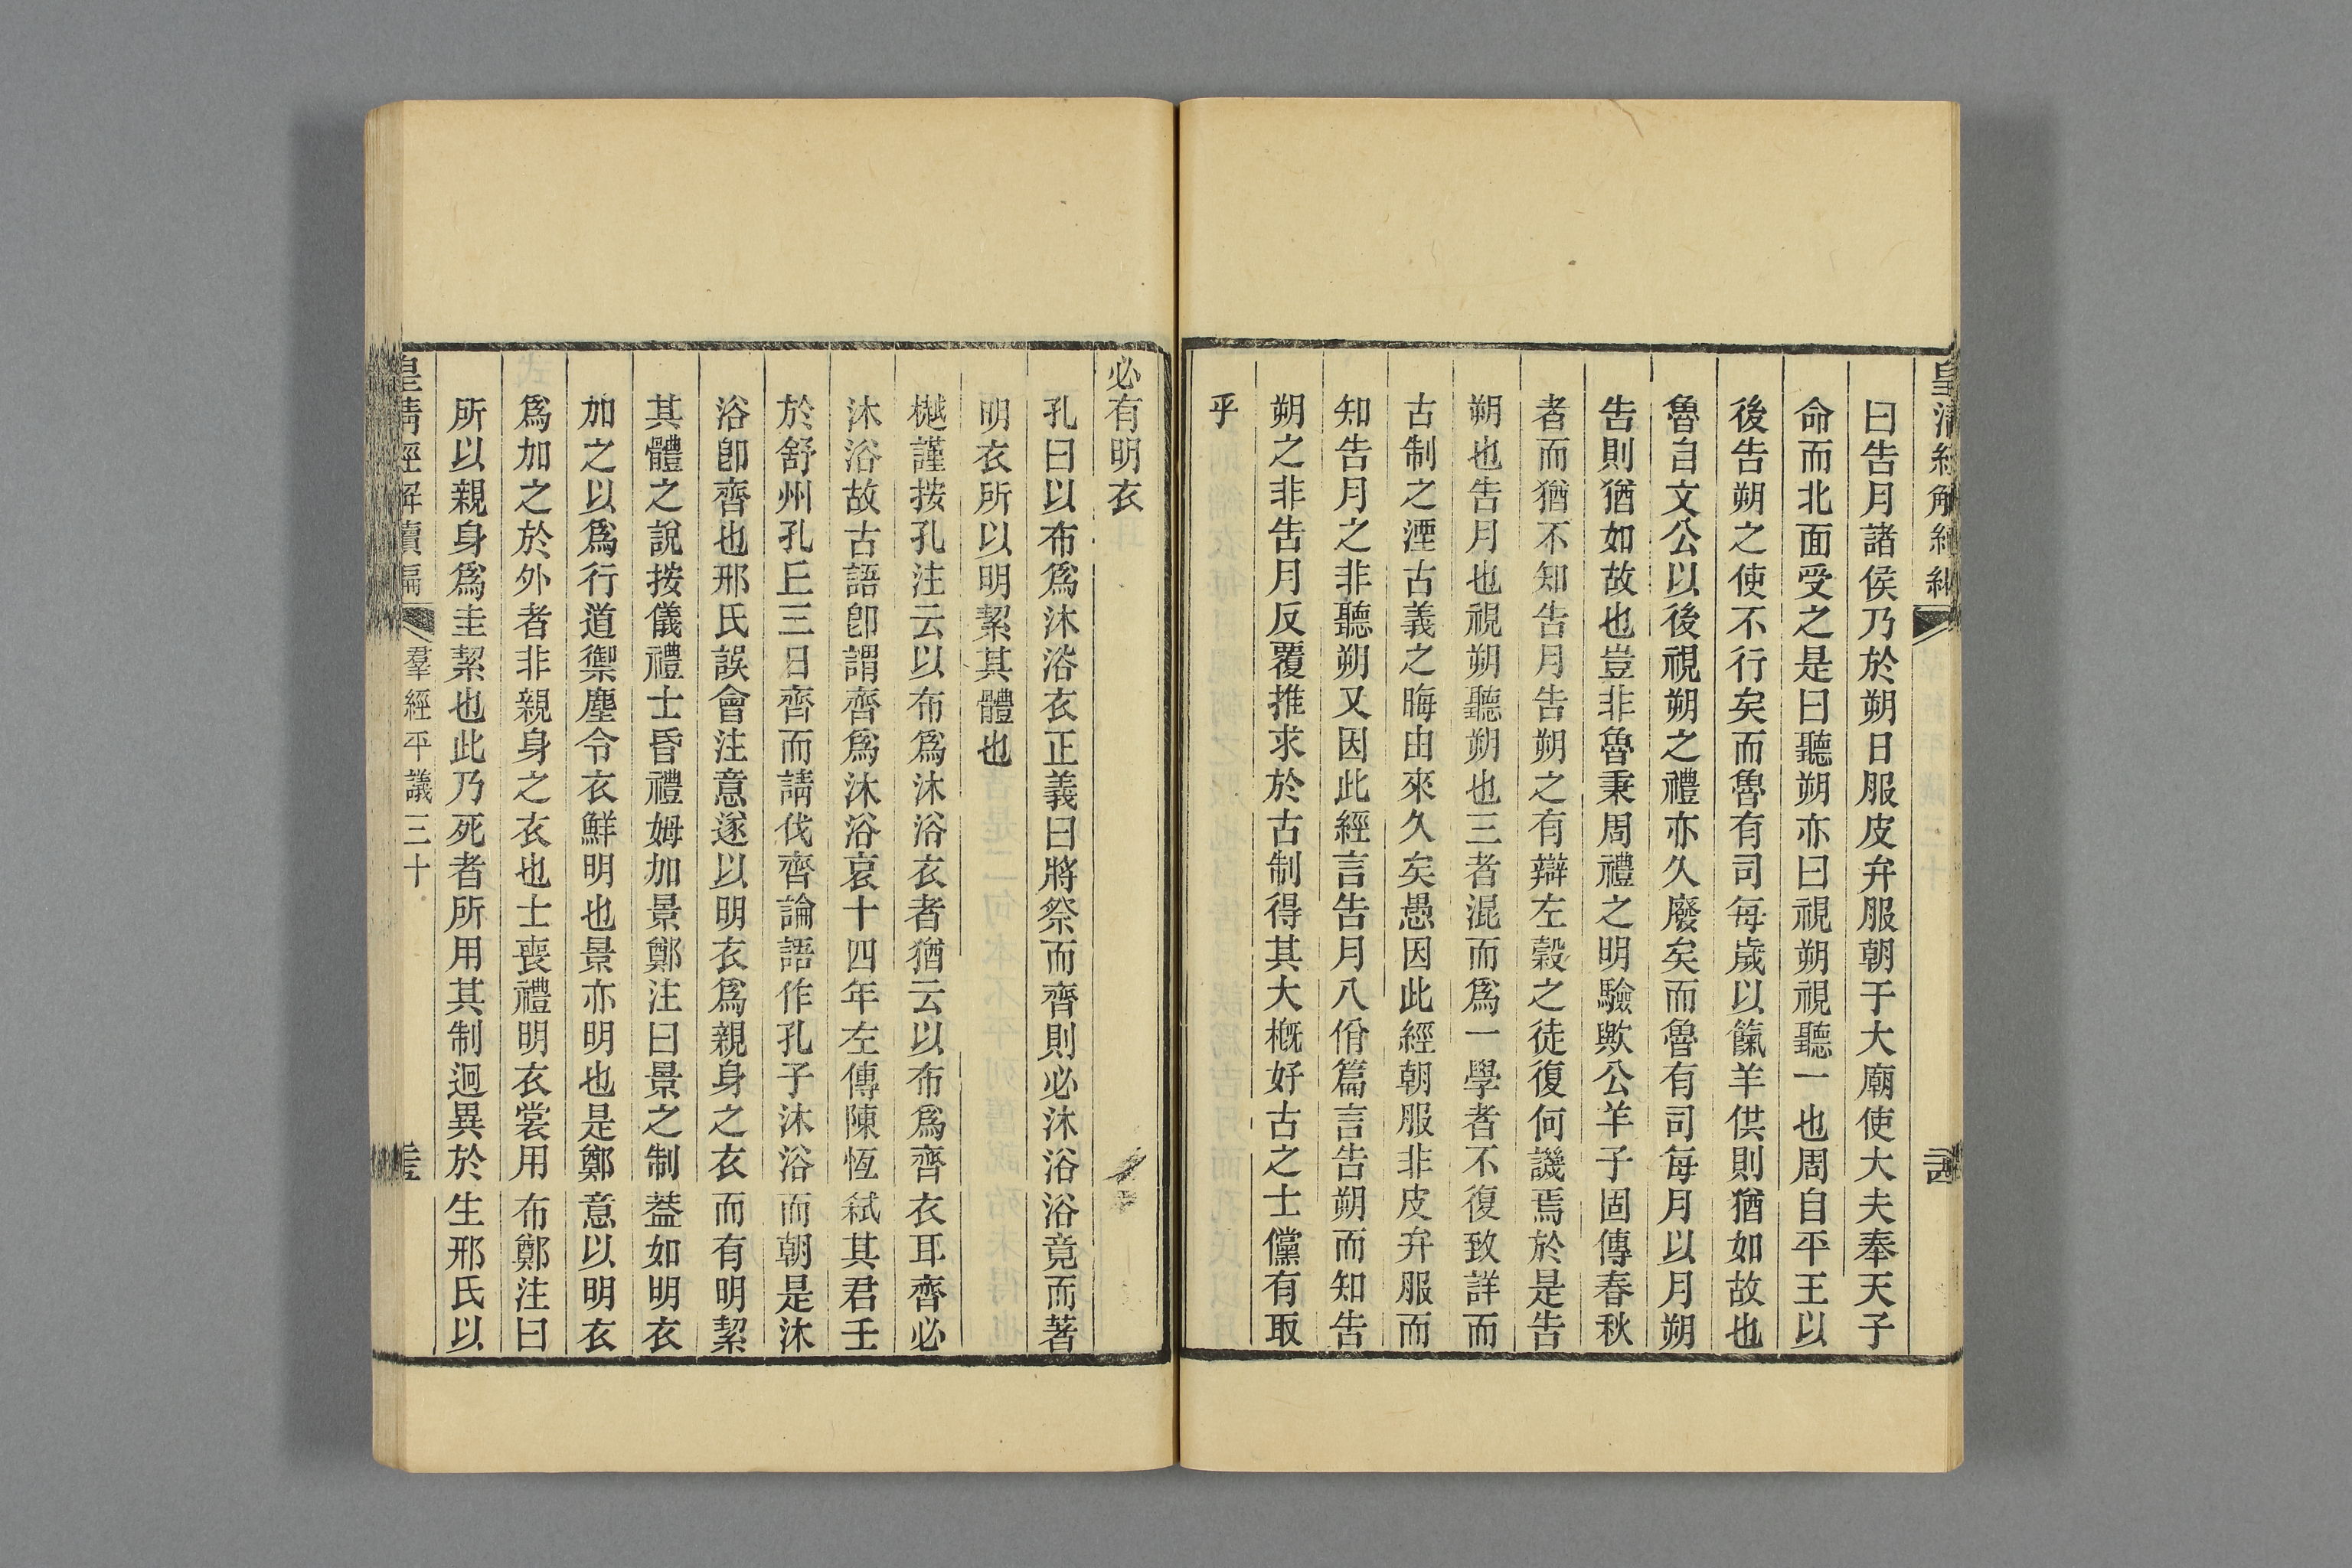 皇清經解續編
曰告月諸侯乃於朔日服皮弁服朝于大廟使大夫奉天子
命而北面受之是曰聽朔亦曰視朔視聽一也周自平王以
後告朔之使不行矣而魯有司每歲以餼羊供則猶如故也
魯自文公以後視朔之禮亦久廢矣而魯有司每月以月朔
告則猶如故也豈非魯秉周禮之明驗歟公羊子固傳春秋
者而猶不知告月告朔之有辯左穀之徒復何譏焉於是告
朔也告月也視朔聽朔也三者混而爲一學者不復致詳而
古制之湮古義之晦由來久矣愚因此經朝服非皮弁服而
知告月之非聽朔又因此經言告月八佾篇言告朔而知告
朔之非告月反覆推求於古制得其大槪好古之士儻有取
乎
必有明衣
孔曰以布爲沐浴衣正義曰將祭而齊則必沐浴浴竟而著
明衣所以明絜其體也
樾謹按孔注云以布爲沐浴衣者猶云以布爲齊衣耳齊必
沐浴故古語卽謂齊爲沐浴哀十四年左傳陳恆弑其君壬
於舒州孔丘三日齊而請伐齊論語作孔子沐浴而朝是沐
浴卽齊也邢氏誤會注意遂以明衣爲親身之衣而有明絜
其體之說按儀禮士昏禮姆加景鄭注曰景之制蓋如明衣
加之以爲行道禦塵令衣鮮明也景亦明也是鄭意以明衣
爲加之於外者非親身之衣也士喪禮明衣裳用布鄭注曰
所以親身爲圭絜也此乃死者所用其制迥異於生邢氏以
皇清經解續編 羣經平議三十